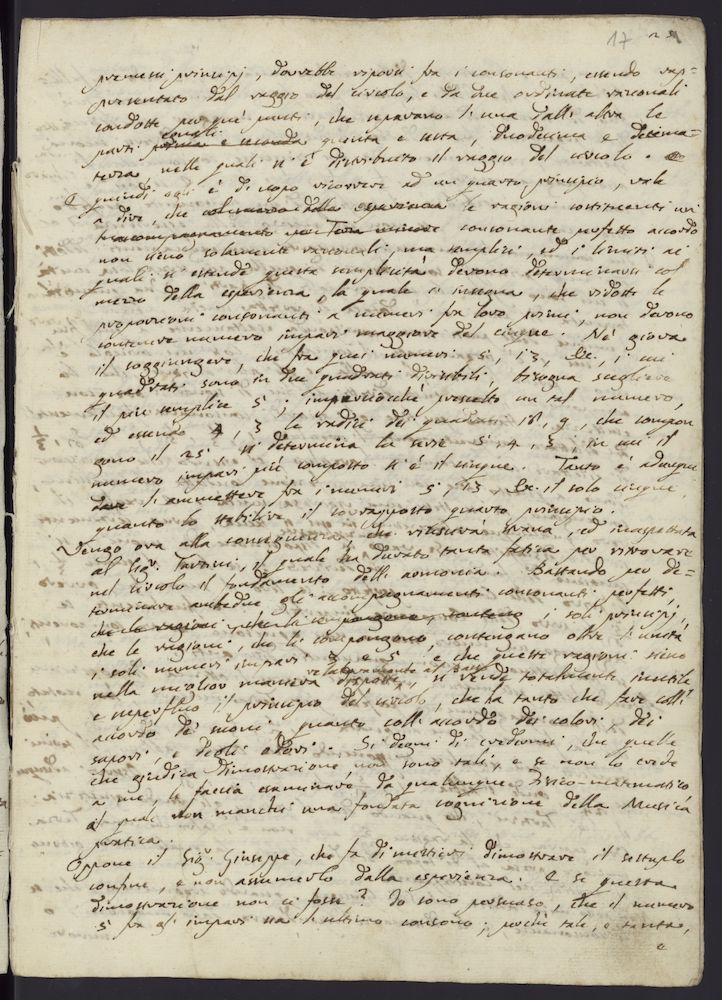 17
premessi principj, dovrebbe riporsi fra i consonanti, essendo rap=
presentato dal raggio del circolo, e da due ordinate razionali
condotte per que' punti, che separano l'una dall'altra le
parti prima e seconda eguali quinta e sesta, duodecima e decima=
terza, nelle quali si è distribuito il raggio del circolo.
E quindi egli è di uopo ricorrere ad un quarto principio, vale
a dire, che col mezzo della esperienza le ragioni costituenti un
accompagnamento per Terza minore consonante perfetto accordo
non sieno solamente razionali, ma semplici, ed i limiti ai
quali si estende questa semplicità devono determinarsi col
mezzo della esperienza, la quale ci insegna, che ridotte le
proporzioni consonanti a numeri fra loro primi, non devono
contenere numero impari maggiore del cinque. Nè giova
il soggiungere, che fra quei numeri 5, 13, &c., i cui
quadrati sono in due quadrati divisibili, bisogna scegliere
il più semplice 5; imperciocchè prescelto un tal numero,
ed essendo 4, 3 le radici dei quadrati 16, 9, che compon
gono il 25, si determina la serie 5, 4, 3, in cui il
numero impari più composto si è il cinque. Tanto è adunque
l'ammettere fra i numeri 5, 13 &c. il solo cinque
quanto lo stabilire il sovrapposto quarto principio.
Vengo ora alla conseguenza che riuscirà strana, ed inaspettata
al Sigr. Tartini, il quale ha durato tanta fatica per ritrovare
nel circolo il fondamento dell'armonia. Bastando per de=
terminare ambedue gli accompagnamenti consonanti perfetti
che le ragioni, che li compongono, contengano i soli principj,
che le ragioni, che li compongono, contengano oltre l'unità
i soli numeri impari 3 e 5, e che queste ragioni sieno
nella miglior maniera disposte relativamente al Basso, si rende totalmente inutile
e superfluo il principio del circolo, che ha tanto che fare coll'
accordo de' suoni, quanto coll'accordo dei colori, dei
sapori, e degli odori. Si degni di credermi, che quelle
che giudica dimostrazioni, non sono tali, e se non lo crede
a me, le faccia esaminare da qualunque Fisico-matematico
al qual non manchi una fondata cognizione della Musica
pratica.
Oppone il Sigr. Giuseppe, che fa di mestieri dimostrare il sestuplo
confine, e non assumerlo dalla esperienza. E se questa
dimostrazione non ci fosse? Io sono persuaso, che il numero
5 fra gli impari sia l'ultimo consono; perchè tale, e tanta,